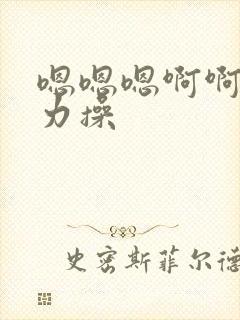 嗯嗯嗯啊啊
力操
史密斯菲尔德